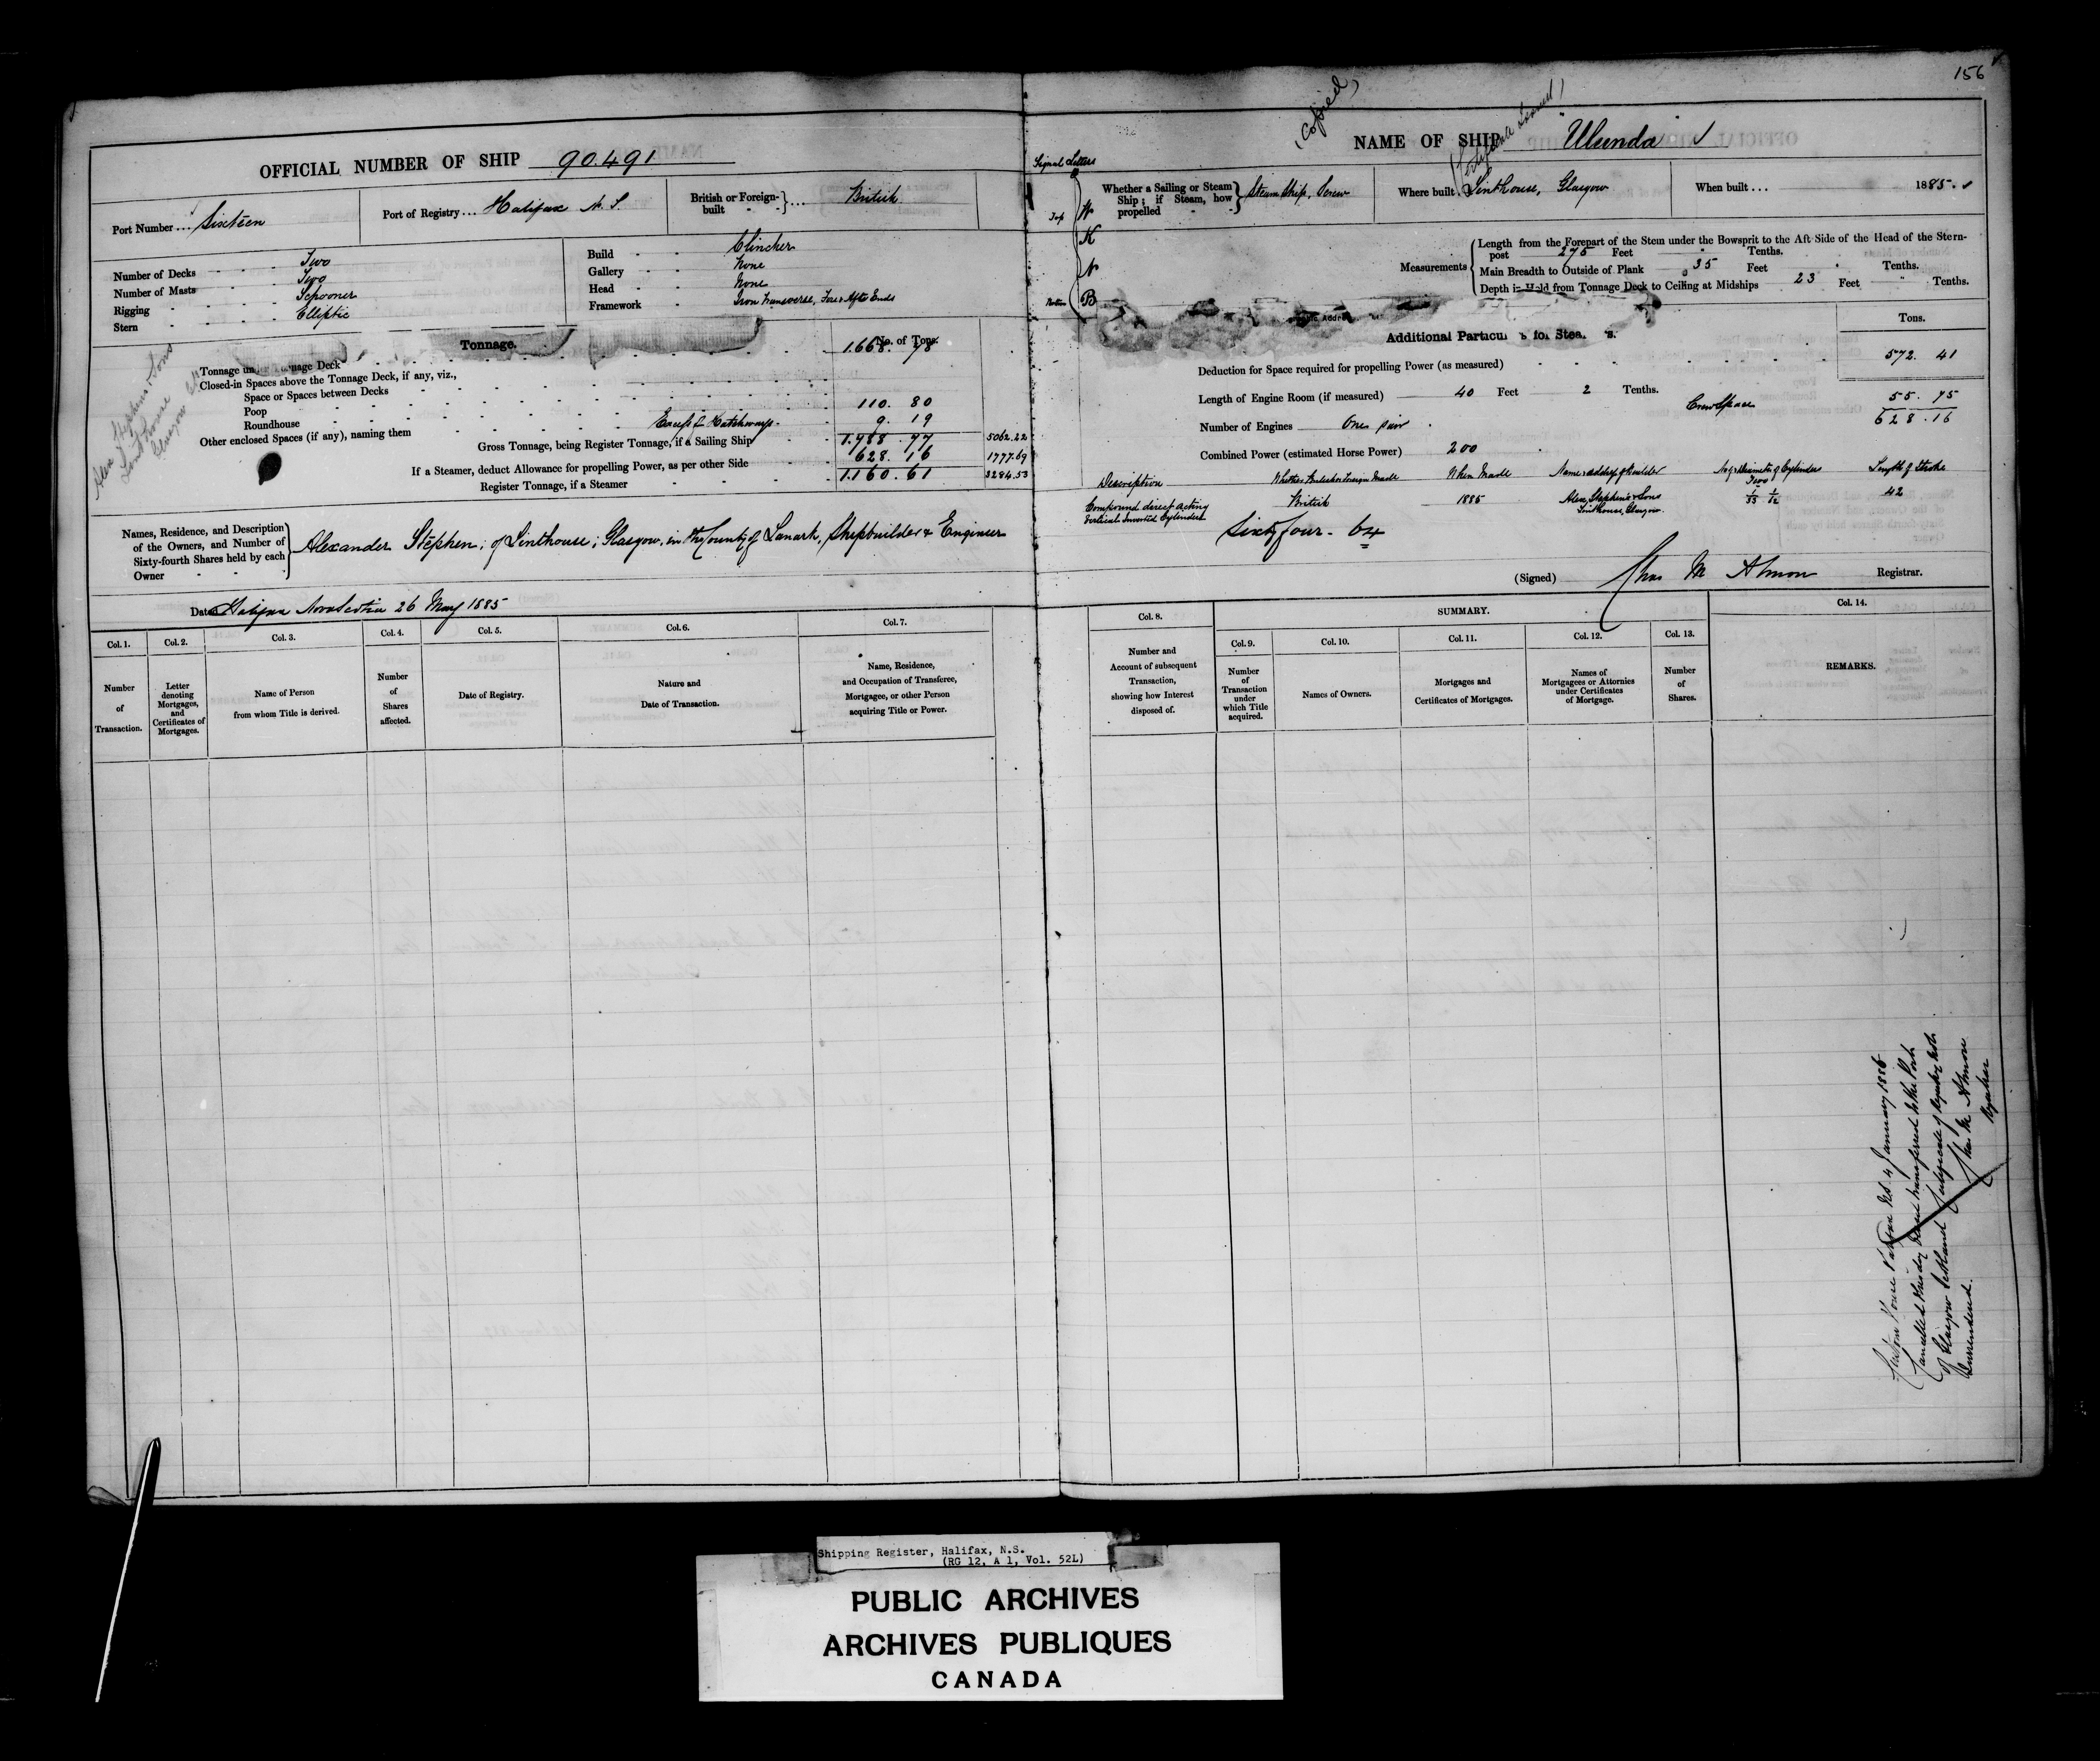 156
(Copied)
OFFICIAL NUMBER OF SHIP 90.491
NAME OF SHIP "Ulunda"
Port Number ... Sixteen
Port of Registry ... Halifax N. S.
British or Foreign-built ... British
Signal Letters
Top
W
K
N
B
Bottom
Whether a Sailing or Steam Ship; if Steam, how propelled Steam Ship, Screw
Where built Linthouse, Glasgow
When built ... 1885.
Number of Decks Two
Number of Masts Two
Rigging Schooner
Stern Elliptic
Build Clincher
Gallery None
Head None
Framework Iron Transverse, Fore & After Ends
Measurements
Length from the Forepart of the Stem under the Bowsprit to the Aft Side of the Head of the Stern-
post 275 Feet Tenths.
Main Breadth to Outside of Plank 35 Feet Tenths.
Depth in Hold from Tonnage Deck to Ceiling at Midships 23 Feet Tenths.
Alex Stephen & Sons
Linthouse
Glasgow
Tonnage.
No. of Tons.
Tonnage un nage Deck 1.668. 78
Closed-in Spaces above the Tonnage Deck, if any, viz.,
Space or Spaces between Decks
Poop 110. 80
Roundhouse
Other enclosed Spaces (if any), naming them Excess of Hatchways 9. 19
Gross Tonnage, being Register Tonnage, if a Sailing Ship 1.788. 77 5062.22
If a Steamer, deduct Allowance for propelling Power, as per other Side 628. 16 1777.69
Register Tonnage, if a Steamer 1.160. 61 3284.53
Additional Particu s for Stea s.
Tons.
Deduction for Space required for propelling Power (as measured) 572. 41
Length of Engine Room (if measured) 40 Feet 2 Tenths.
Crew Space 55. 75
628. 16
Number of Engines One pair
Combined Power (estimated Horse Power) 200
Description
Whether British or Foreign Made
When Made
Name & address of Builder
No & Diameter of Cylinders
Length of Stroke
Compound direct acting
Vertical Inverted Cylinders
British
1885
Alex. Stephen & Sons
Linthouse, Glasgow
Two
42
Names, Residence, and Description
of the Owners, and Number of
Sixty-fourth Shares held by each
Owner
Alexander Stephen; of Linthouse; Glasgow, in the County of Lanark, Shipbuilder & Engineer
Sixty four - 64
(Signed) Chas M Almon Registrar.
Dated Halifax Nova Scotia 26 May 1885
SUMMARY.
Col. 1.
Number
of
Transaction.
Col. 2.
Letter
denoting
Mortgages,
and
Certificates of
Mortgages.
Col. 3.
Name of Person
from whom Title is derived.
Col. 4.
Number
of
Shares
affected.
Col. 5.
Date of Registry.
Col. 6.
Nature and
Date of Transaction.
Col. 7.
Name, Residence,
and Occupation of Transferee,
Mortgagee, or other Person
acquiring Title or Power.
Col. 8.
Number and
Account of subsequent
Transaction,
showing how Interest
disposed of.
Col. 9.
Number
of
Transaction
under
which Title
acquired.
Col. 10.
Names of Owners.
Col. 11.
Mortgages and
Certificates of Mortgages.
Col. 12.
Names of
Mortgagees or Attornies
under Certificates
of Mortgage.
Col. 13.
Number
of
Shares.
Col. 14.
REMARKS.
Custom House Halifax N.S. 4 January 1886
Cancelled this day Vessel transferred to the Port
of Glasgow Scotland Certificate of Registry
Surrendered.
Chas M Almon
Registrar
Shipping Register, Halifax, N.S.
(RG 12, A 1, Vol. 52L)
PUBLIC ARCHIVES
ARCHIVES PUBLIQUES
CANADA